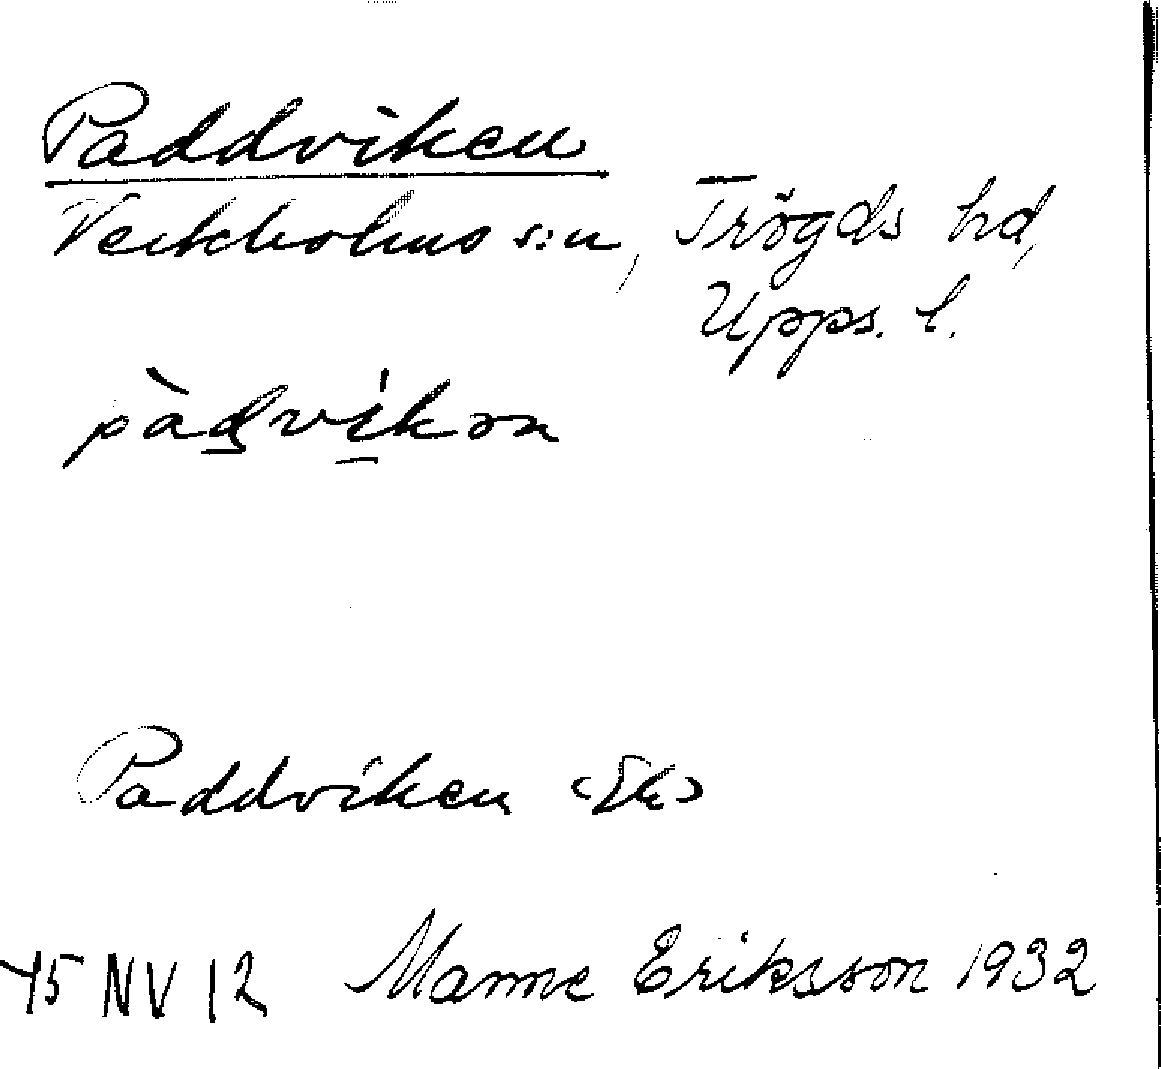 Paddviken
Veckholms s:n, Trögds hd,
Upps. l.
pàdvikən
Paddviken (Ek)
45 NV 12 Manne Eriksson 1932